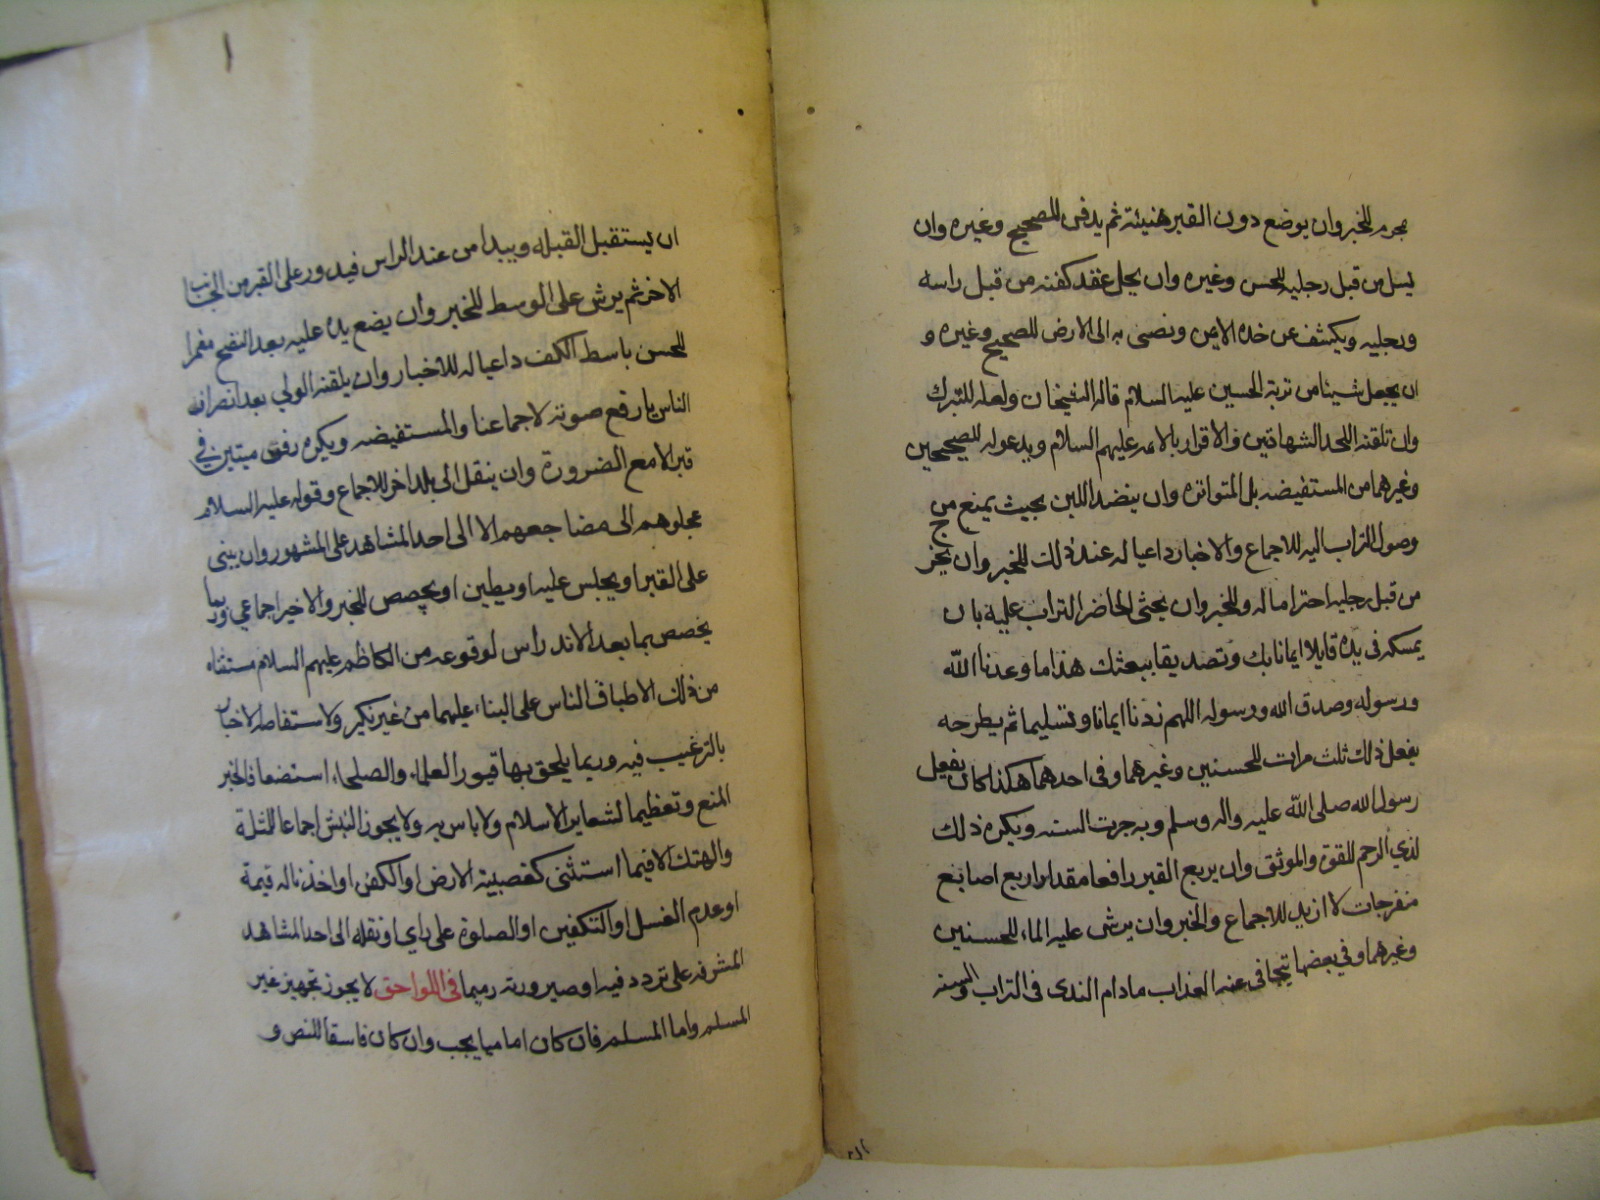 محرم للخبر وان يوضع دون القبر هنيئة ثم يدفن للصحيح وغيره وان
يسل من قبل رجليه للحسن وغيره وان يحل عقد كفنه من قبل راسه
ورجليه ويكشف عن خده الايمن ويفضى به الى الارض للصحيح وغيره و
ان يجعل شيئا من تربة الحسين عليه السلام قاله الشيخان ولعله للتبرك
وان تلقنه اللحد الشهادتين والاقرار بالائمه عليهم السلام ويدعوله للصحيحين
وغيرهما من المستفيضه بل المتواتره وان ينضد اللبن بحيث يمنع من
وصول التراب اليه للاجماع والاخبار داعيا له عند ذلك للخبر وان يخرج
من قبل رجليه احتراما له وللخبر وان يحثى الحاضر التراب عليه بان
يمسكه فى يده قايلا ايمانا بك وتصديقا ببعثك هذا ما وعدنا الله
ورسوله وصدق الله ورسوله اللهم زدنا ايمانا وتسليما ثم يطرحه
يفعل ذلك ثلث مرات للحسنين وغيرهما وفى احدهما هكذا كان يفعل
رسول الله صلى الله عليه واله وسلم وبه جرت السنه ويكره ذلك
لذي الرحم للقوة والموثق وان يربع القبر رافعا مقدار اربع اصابع
منفرجات لا ازيد للاجماع والخبر وان يرش عليه الماء للحسنين
وغيرهما وفي بعضها يتجافى عنه العذاب مادام الندى فى التراب والسنه
ان
ان يستقبل القبله ويبدا من عند الراس فيدور على القبر من الجانب
الاخر ثم يرش على الوسط للخبر وان يضع يده عليه بعد النضح مفرجا
للحسن باسط الكف داعيا له للاخبار وان يلقنه الولي بعد انصراف
الناس بارفع صوته لاجماعنا والمستفيضه ويكره دفن ميتين في
قبر الا مع الضرورة وان ينقل الى بلد اخر للاجماع وقوله عليه السلام
عجلوهم الى مضاجعهم الا الى احد المشاهد على المشهور وان يبنى
على القبر او يجلس عليه او يطين او يجصص للخبر والاخير اجماعي وربما
يخصص بما بعد الاندراس لوقوعه من الكاظم عليهم السلام مستثناه
من ذلك الاطباق الناس على البناء عليهما من غير نكير ولاستفاضه الاخبار
بالترغيب فيه وربما يلحق بها قبور العلماء والصلحاء استضعافا لخبر
المنع وتعظيما لشعاير الاسلام ولا باس به ولا يجوز النبش اجماعا للمثلة
والهتك الا فيما استثنى كغصبية الارض او الكفن او اخذ ماله قيمة
او عدم الغسل او التكفين او الصلوة على راي او نقله الى احد المشاهد
المشرفه على تردد فيه او صيرورته رميما فى اللواحق لا يجوز تجهيز غير
المسلم واما المسلم فان كان اماميا يجب وان كان فاسقا للنص و